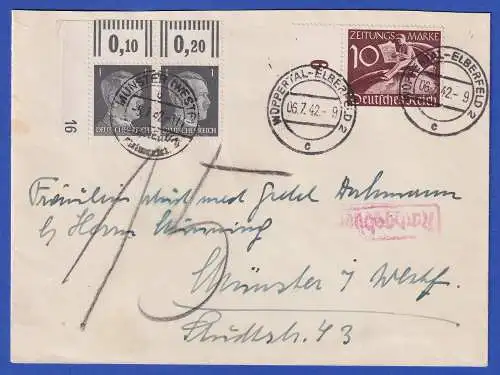 0,10 0,20
1 1
DEUTSCHES REICH DEUTSCHES REICH
16
MÜNSTER (WESTF)
ZEITUNGS MARKE
10
Deutsches Reich
WUPPERTAL-ELBERFELD 2
06.7.42.- 9
c
WUPPERTAL-ELBERFELD 2
06.7.42.- 9
c
15
Fräulein stud med Gretel
b/ Herrn
Nachgebühr
Münster i Westf.
Studtstr. 43